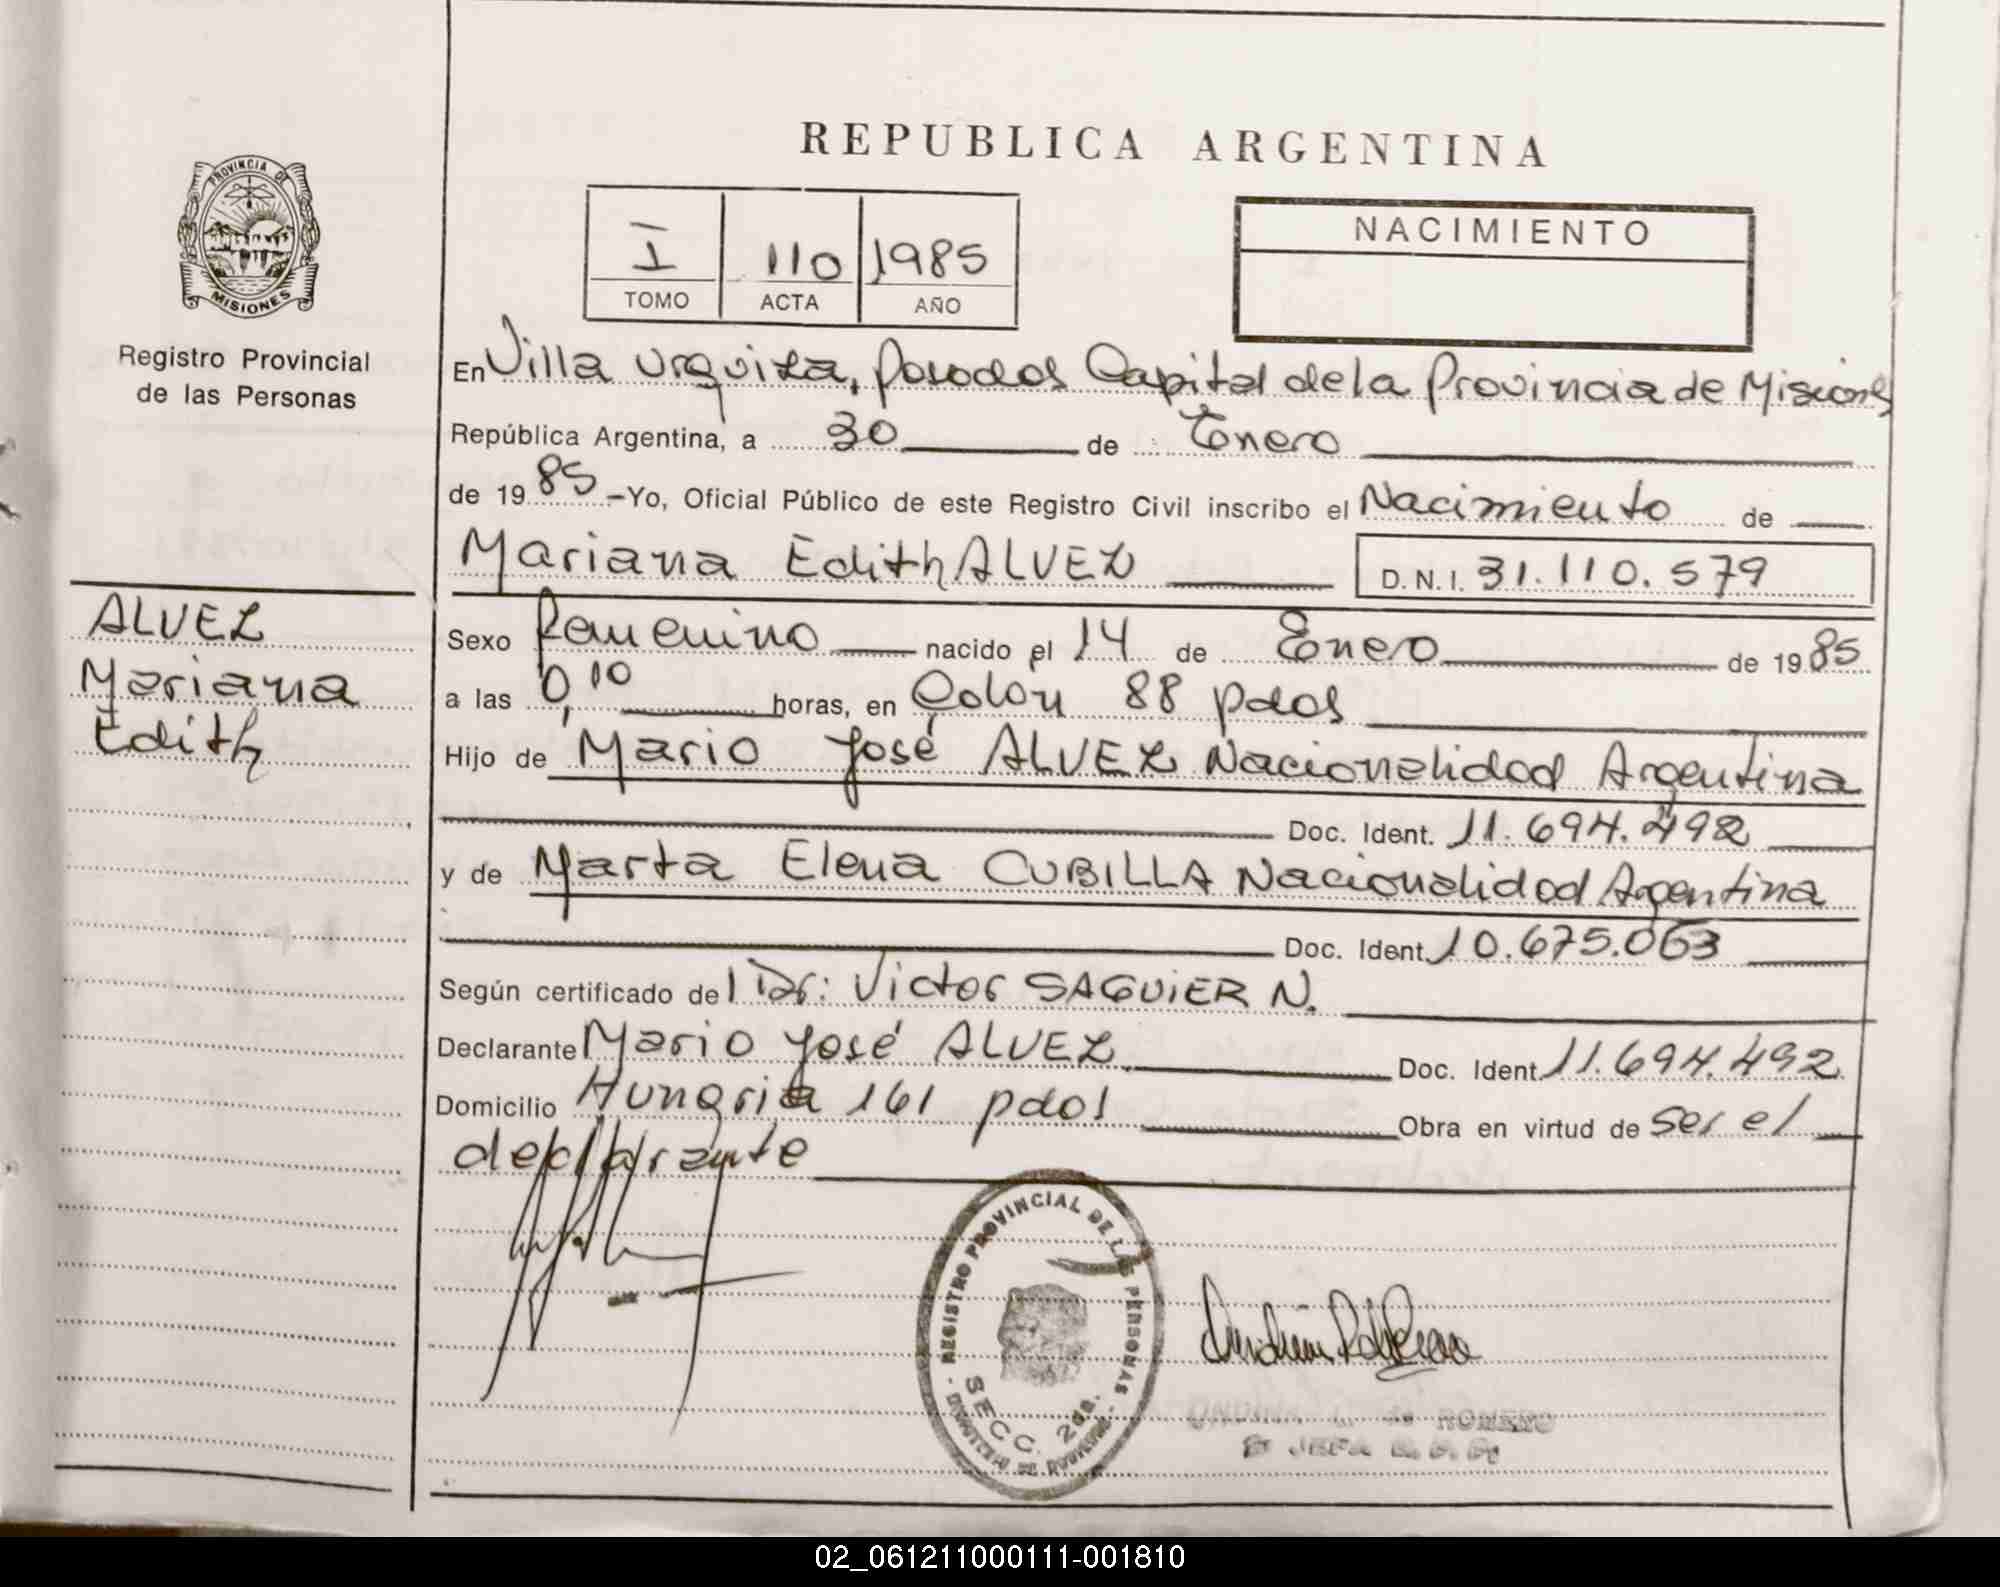 REPUBLICA ARGENTINA
PROVINCIA DE
MISIONES
Registro Provincial
de las Personas
I 110 1985
TOMO ACTA AÑO
NACIMIENTO
En Villa Urquiza, Posadas Capital de la Provincia de Misiones
República Argentina, a 30 de Enero
de 1985 -Yo, Oficial Público de este Registro Civil inscribo el Nacimiento de
Mariana Edith ALVEZ D.N.I. 31.110.579
ALVEZ
Mariana
Edith
Sexo Femenino nacido el 14 de Enero de 1985
a las 0,10 horas, en Colón 88 pdas
Hijo de Mario José ALVEZ Nacionalidad Argentina
Doc. Ident. 11.694.492
y de Marta Elena CUBILLA Nacionalidad Argentina
Doc. Ident. 10.675.063
Según certificado del Dr: Victor SAGUIER N.
Declarante Mario José ALVEZ Doc. Ident 11.694.492
Domicilio Hungria 161 pdas Obra en virtud de ser el
declarante
REGISTRO PROVINCIAL DE LAS PERSONAS
SECC. 2da.
de ROMERO
JEFA
02_061211000111-001810